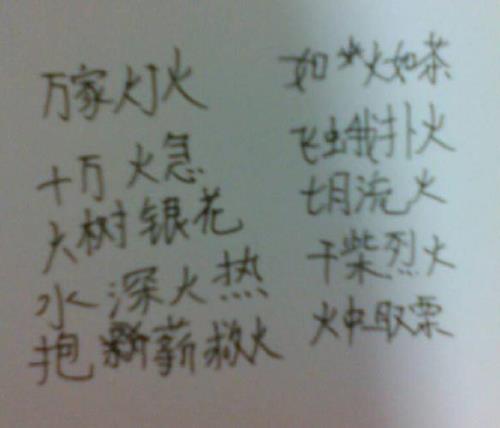 万家灯火
十万火急
火树银花
水深火热
抱薪救火
如火如茶
飞蛾扑火
七月流火
干柴烈火
火中取栗